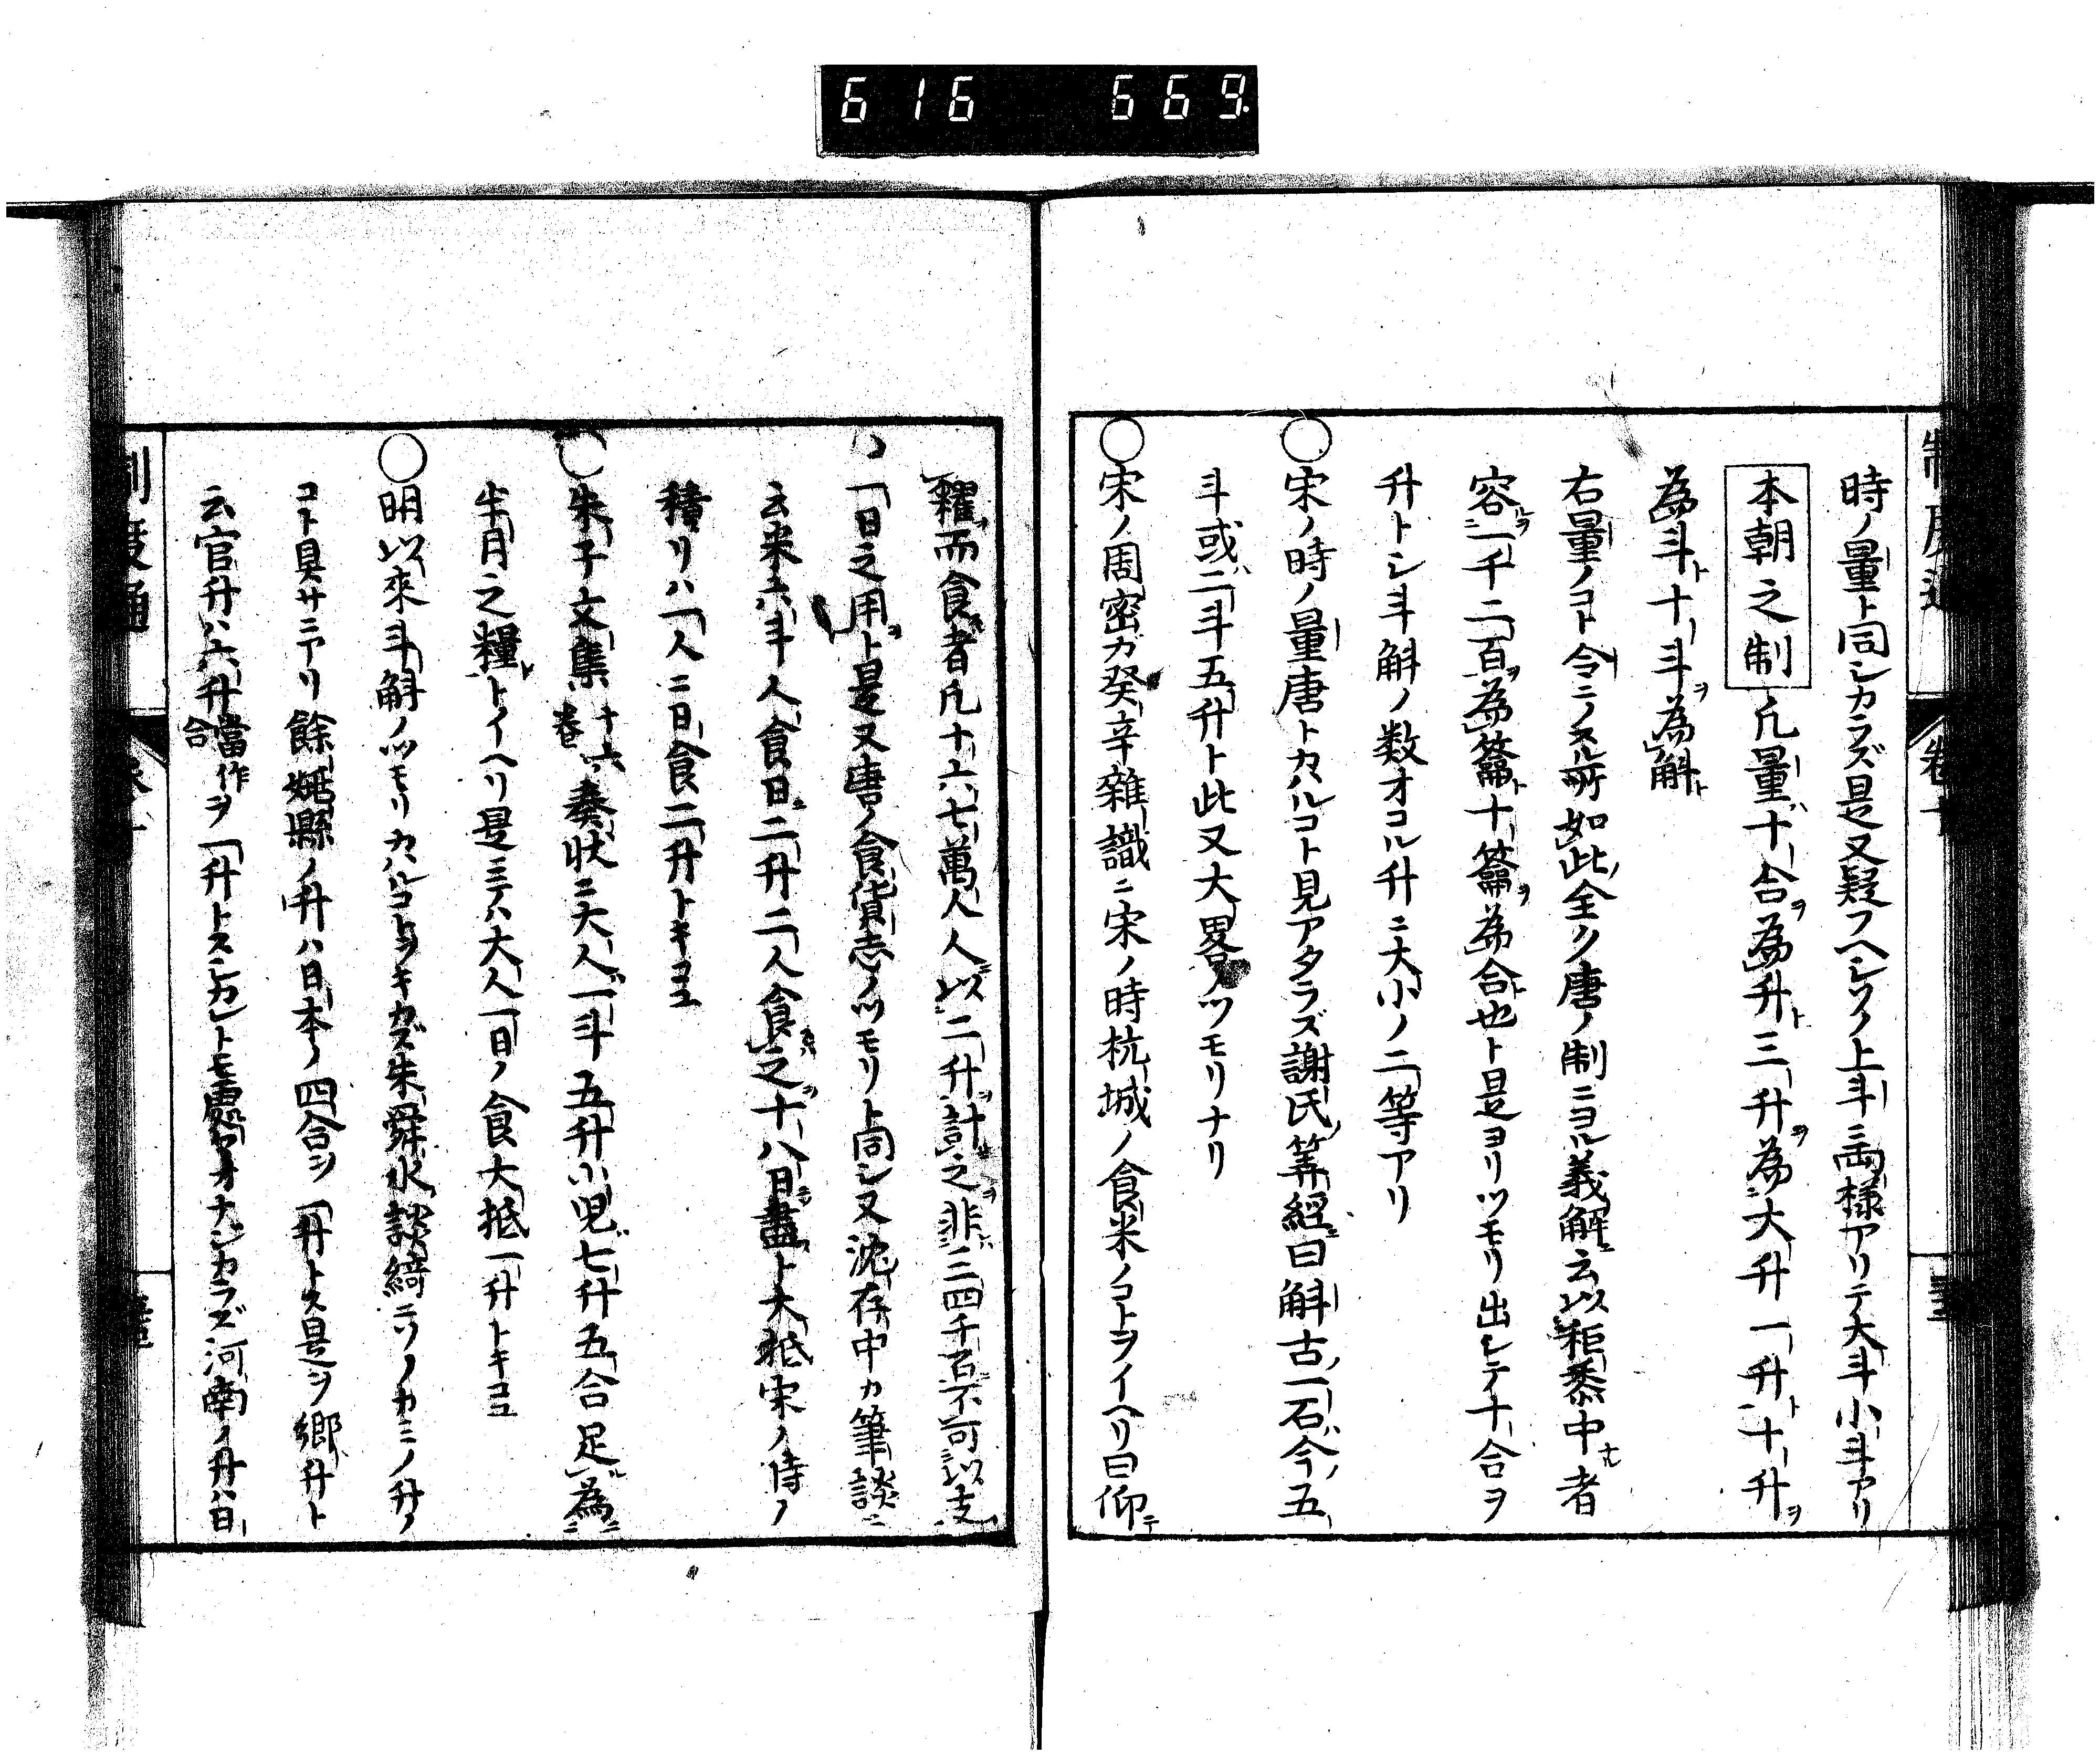 616 669
時ノ量ト同シカラズ是又疑フヘシソノ上斗ニ両様アリテ大斗小斗アリ
本朝之制凡量十合為升三升為大升一升十升
為斗十斗為斛
右量ノコト令ニノスル所如此全ク唐ノ制ニヨル義解云以秬黍中者
容一千二百為籥十籥為合也ト是ヨリツモリ出シテ十合ヲ
升トシ斗斛ノ数オコル升ニ大小ノ二等アリ
○宋ノ時ノ量唐トカハルコト見アタラズ謝氏筭経曰斛古一石今五
斗或二斗五升ト此又大畧ノツモリナリ
○宋ノ周密ガ癸辛雜識ニ宋ノ時杭城ノ食米ノコトヲイヘリ曰仰
糴而食者凡十六七萬人人以二升計之非三四千石不可以支
一日之用ト是又唐ノ食貨志ノツモリト同シ又沈存中カ筆談ニ
云米六斗人食日二升二人食之十八日盡ト大抵宋ノ時ノ
積リハ一人ニ日食二升トキコユ
○朱子文集十六巻奏状ニ大人一斗五升小児七升五合足為
半月之糧トイヘリ是ニテハ大人一日ノ食大抵一升トキコユ
○明以來斗斛ノツモリカハルコトヲキカズ朱舜水談綺ニソノカミノ升ノ
コト具サニアリ餘姚縣ノ升ハ日本ノ四合ヲ一升トス是ヲ郷升ト
云官升ハ六升當作合ヲ一升トスシカレトモ處々オナシカラズ河南ノ升ハ日
制度通 卷十